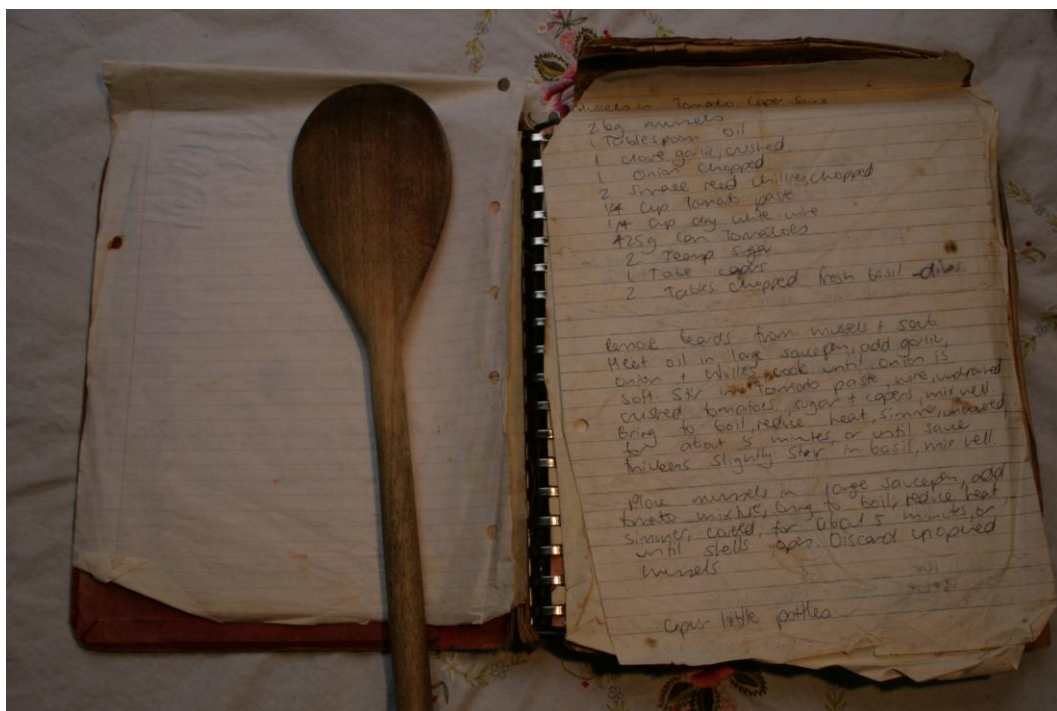 Mussels in Tomato Caper Sauce
2 kg mussels
1 Tablespoon oil
1 clove garlic, crushed
1 onion chopped
2 small reed chillies, chopped
1/4 cup Tomato paste
1/4 cup dry white wine
425g Can Tomatoes
2 Teasp sugar
1 Table capers
2 Tables chopped fresh basil
Remove beards from mussels +
Heat oil in large saucepan, add garlic,
onion + chillies cook until onion is
soft. Stir in Tomato paste, wine, undrained
crushed tomatoes, sugar + capers, mix well.
Bring to boil, reduce heat, simmer, uncovered
for about 5 minutes, or until sauce
thickens slightly. Stir in basil, mix well.
Place mussels in large saucepan, add
tomato mixture, bring to boil, reduce heat
simmer, covered, for about 5 minutes, or
until shells open. Discard unopened
mussels
Capers little pottles